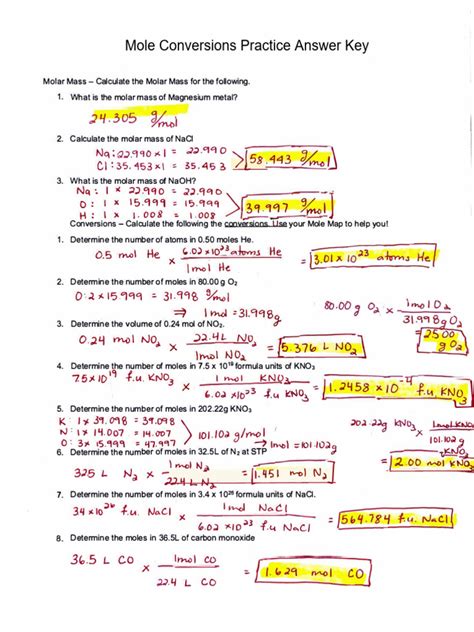 Mole Conversions Practice Answer Key
Molar Mass – Calculate the Molar Mass for the following.
1. What is the molar mass of Magnesium metal?
24.305 g/mol
2. Calculate the molar mass of NaCl
Na: 22.990 x 1 = 22.990
Cl: 35.453 x 1 = 35.453
58.443 g/mol
3. What is the molar mass of NaOH?
Na: 1 x 22.990 = 22.990
O: 1 x 15.999 = 15.999
H: 1 x 1.008 = 1.008
39.997 g/mol
Conversions – Calculate the following the conversions. Use your Mole Map to help you!
1. Determine the number of atoms in 0.50 moles He.
0.5 mol He x 6.02 x 10²³ atoms He
1 mol He
= 3.01 x 10²³ atoms He
2. Determine the number of moles in 80.00 g O₂
O: 2 x 15.999 = 31.998 g/mol
→ 1 mol = 31.998g
80.00 g O₂ x 1 mol O₂
31.998 g O₂
= 2.500
g O₂
3. Determine the volume of 0.24 mol of NO₂.
0.24 mol NO₂ x 22.4 L NO₂
1 mol NO₂
= 5.376 L NO₂
4. Determine the number of moles in 7.5 x 10¹⁹ formula units of KNO₃
7.5 x 10¹⁹ f.u. KNO₃ x 1 mol KNO₃
6.02 x 10²³ f.u. KNO₃
= 1.2458 x 10⁻⁴ f.u. KNO₃
5. Determine the number of moles in 202.22g KNO₃
K: 1 x 39.098 = 39.098
N: 1 x 14.007 = 14.007
O: 3 x 15.999 = 47.997
101.102 g/mol
→ 1 mol = 101.102g
202.22g KNO₃ x 1 mol KNO₃
101.102 g KNO₃
= 2.00 mol KNO₃
6. Determine the number of moles in 32.5L of N₂ at STP
325 L N₂ x 1 mol N₂
22.4 L N₂
= 1.451 mol N₂
7. Determine the number of moles in 3.4 x 10²⁶ formula units of NaCl.
34 x 10²⁶ f.u. NaCl x 1 mol NaCl
6.02 x 10²³ f.u. NaCl
= 564.784 f.u. NaCl
8. Determine the moles in 36.5L of carbon monoxide
36.5 L CO x 1 mol CO
22.4 L CO
= 1.629 mol CO